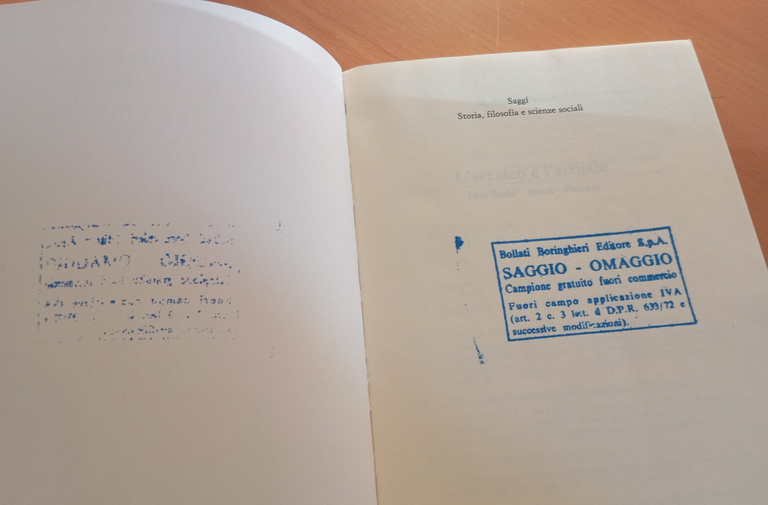 Saggi
Storia, filosofia e scienze sociali
L'arcaico e l'attuale
Bollati Boringhieri Editore S.p.A.
SAGGIO - OMAGGIO
Campione gratuito fuori commercio
Fuori campo applicazione IVA
(art. 2 c. 3 lett. d D.P.R. 633/72 e
successive modificazioni).